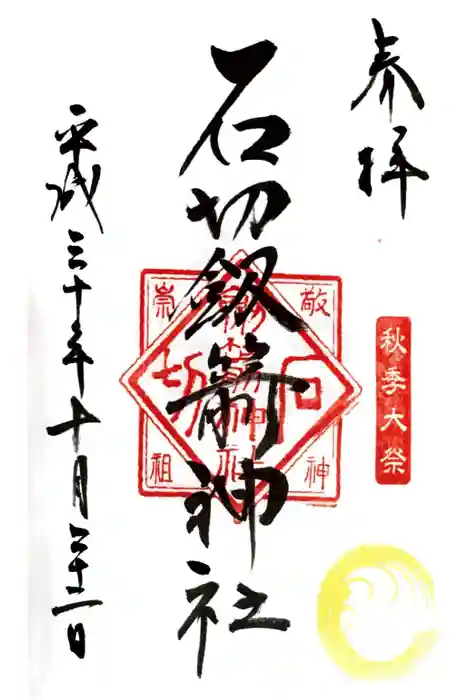 奉拝
秋季大祭
石切釼箭神社
敬神
崇祖
石切
平成三十年十月二十二日